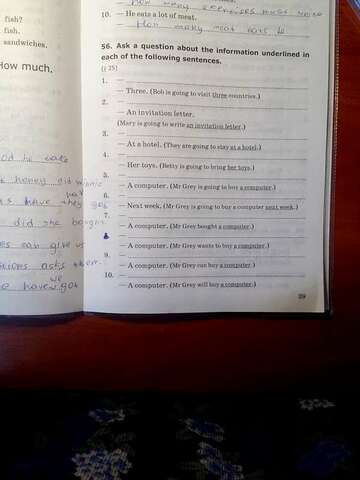 fish?
fish.
sandwiches.
How much,
10. — He eats a lot of meat.
How many meat
56. Ask a question about the information underlined in
each of the following sentences.
1. —
— Three. (Bob is going to visit three countries.)
2. —
— An invitation letter.
(Mary is going to write an invitation letter.)
3. —
— At a hotel. (They are going to stay at a hotel.)
4. —
— Her toys. (Betty is going to bring her toys.)
5. —
— A computer. (Mr Grey is going to buy a computer.)
6. —
— Next week. (Mr Grey is going to buy a computer next week.)
7. —
— A computer. (Mr Grey bought a computer.)
— A computer. (Mr Grey wants to buy a computer.)
9. —
— A computer. (Mr Grey can buy a computer.)
10. —
— A computer. (Mr Grey will buy a computer.)
he eats
honey did
have they got
did she
can give us
asks them
we
have got
29